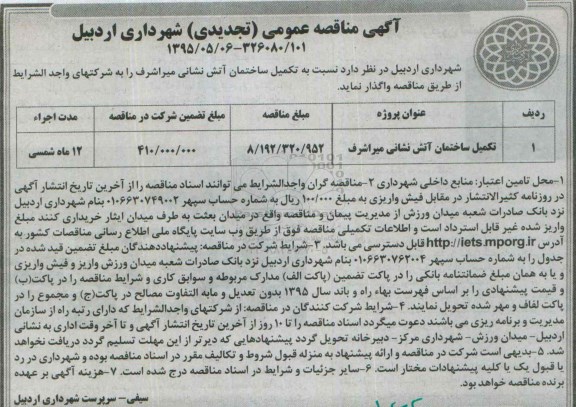 آگهی مناقصه عمومی (تجدیدی) شهرداری اردبیل
۱۳۹۵/۰۵/۰۶-۳۲۶۰۸۰/۱۰۱
شهرداری اردبیل در نظر دارد نسبت به تکمیل ساختمان آتش نشانی میراشرف را به شرکتهای واجد الشرایط
از طریق مناقصه واگذار نماید.
ردیف عنوان پروژه مبلغ مناقصه مبلغ تضمین شرکت در مناقصه مدت اجراء
۱ تکمیل ساختمان آتش نشانی میراشرف ۸/۱۹۲/۳۲۰/۹۵۲ ۴۱۰/۰۰۰/۰۰۰ ۱۲ ماه شمسی
۱-محل تامین اعتبار: منابع داخلی شهرداری ۲-مناقصه گران واجدالشرایط می توانند اسناد مناقصه را از آخرین تاریخ انتشار آگهی
در روزنامه کثیرالانتشار در مقابل فیش واریزی به مبلغ ۱۰۰/۰۰۰ ریال به شماره حساب سپهر ۰۱۰۶۶۳۰۷۴۹۰۰۲ بنام شهرداری اردبیل
نزد بانک صادرات شعبه میدان ورزش از مدیریت پیمان و مناقصه واقع در میدان بعثت به طرف میدان ایثار خریداری کنند مبلغ
واریز شده غیر قابل استرداد است و اطلاعات تکمیلی مناقصه فوق از طریق وب سایت پایگاه ملی اطلاع رسانی مناقصات کشور به
آدرس http://iets.mporg.ir قابل دسترسی می باشد. ۳-شرایط شرکت در مناقصه: پیشنهاددهندگان مبلغ تضمین قید شده در
جدول را به شماره حساب سپهر ۰۱۰۶۶۳۰۷۶۲۰۰۴ بنام شهرداری اردبیل نزد بانک صادرات شعبه میدان ورزش واریز و فیش واریزی
و یا به همان مبلغ ضمانتنامه بانکی را در پاکت تضمین (پاکت الف) مدارک مربوطه و سوابق کاری و شرایط مناقصه را در پاکت(ب)
و قیمت پیشنهادی را بر اساس فهرست بهاء راه و باند سال ۱۳۹۵ بدون تعدیل و مابه التفاوت مصالح در پاکت(ج) و مجموع را در
پاکت لفاف و مهر شده تحویل نمایند. ۴-شرایط شرکت کنندگان در مناقصه: از شرکتهای واجدالشرایط که دارای رتبه راه از سازمان
مدیریت و برنامه ریزی می باشند دعوت میگردد اسناد مناقصه را تا ۱۰ روز از آخرین تاریخ انتشار آگهی و تا آخر وقت اداری به نشانی
اردبیل- میدان ورزش- شهرداری مرکز- دبیرخانه تحویل گردد پیشنهادهایی که دیرتر از این مهلت تسلیم گردد دریافت نخواهد
شد. ۵-بدیهی است شرکت در مناقصه و ارائه پیشنهاد به منزله قبول شروط و تکالیف مقرر در اسناد مناقصه بوده و شهرداری در رد
یا قبول یک یا کلیه پیشنهادات مختار است. ۶-سایر جزئیات و شرایط در اسناد مناقصه درج شده است. ۷-هزینه آگهی بر عهده
برنده مناقصه خواهد بود.
سیفی- سرپرست شهرداری اردبیل